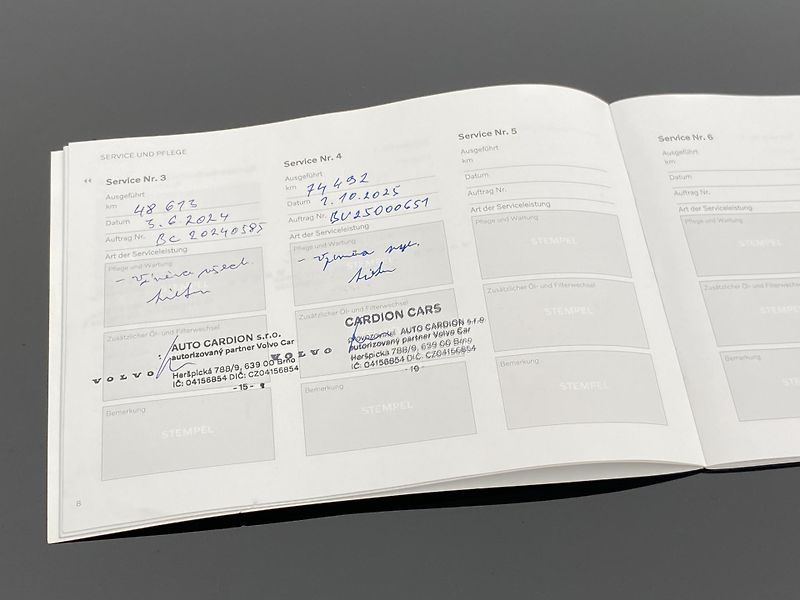 SERVICE UND PFLEGE
Service Nr. 3
Ausgeführt
km 48 613
Datum 3.6 2024
Auftrag Nr. BC 20240585
Art der Serviceleistung
Pflege und Wartung
- Výměna všech
filtrů
Zusätzlicher Öl- und Filterwechsel
AUTO CARDION s.r.o.
autorizovaný partner Volvo Car
VOLVO
Heršpická 788/9, 639 00 Brno
IČ: 04156854 DIČ: CZ04156854
- 15 -
Bemerkung
STEMPEL
8
Service Nr. 4
Ausgeführt
km 74 492
Datum 1.10.2025
Auftrag Nr. BV25000651
Art der Serviceleistung
Pflege und Wartung
- Výměna
Zusätzlicher Öl- und Filterwechsel
CARDION CARS
provozovatel AUTO CARDION s.r.o
autorizovaný partner Volvo Car
VOLVO
Heršpická 788/9, 639 00 Brno
IČ: 04156854 DIČ: CZ04156854
- 10 -
Bemerkung
STEMPEL
Service Nr. 5
Ausgeführt
km
Datum
Auftrag Nr.
Art der Serviceleistung
Pflege und Wartung
STEMPEL
Zusätzlicher Öl- und Filterwechsel
STEMPEL
Bemerkung
STEMPEL
Service Nr. 6
Ausgeführt
km
Datum
Auftrag Nr.
Art der Serviceleistung
Pflege und Wartung
STEMPEL
Zusätzlicher Öl- und Filterwechsel
STEMPEL
Bemerkung
STEMPEL